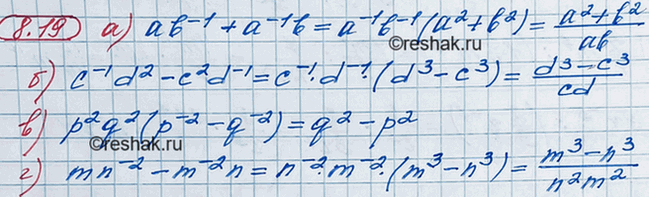 8.19 а) ab⁻¹ + a⁻¹b = a⁻¹b⁻¹(a² + b²) = (a² + b²)/(ab)
©reshak.ru
б) c⁻¹d² - c²d⁻¹ = c⁻¹·d⁻¹·(d³ - c³) = (d³ - c³)/(cd)
в) p²q²(p⁻² - q⁻²) = q² - p²
©reshak.ru
г) mn⁻² - m⁻²n = n⁻²·m⁻²·(m³ - n³) = (m³ - n³)/(n²m²)